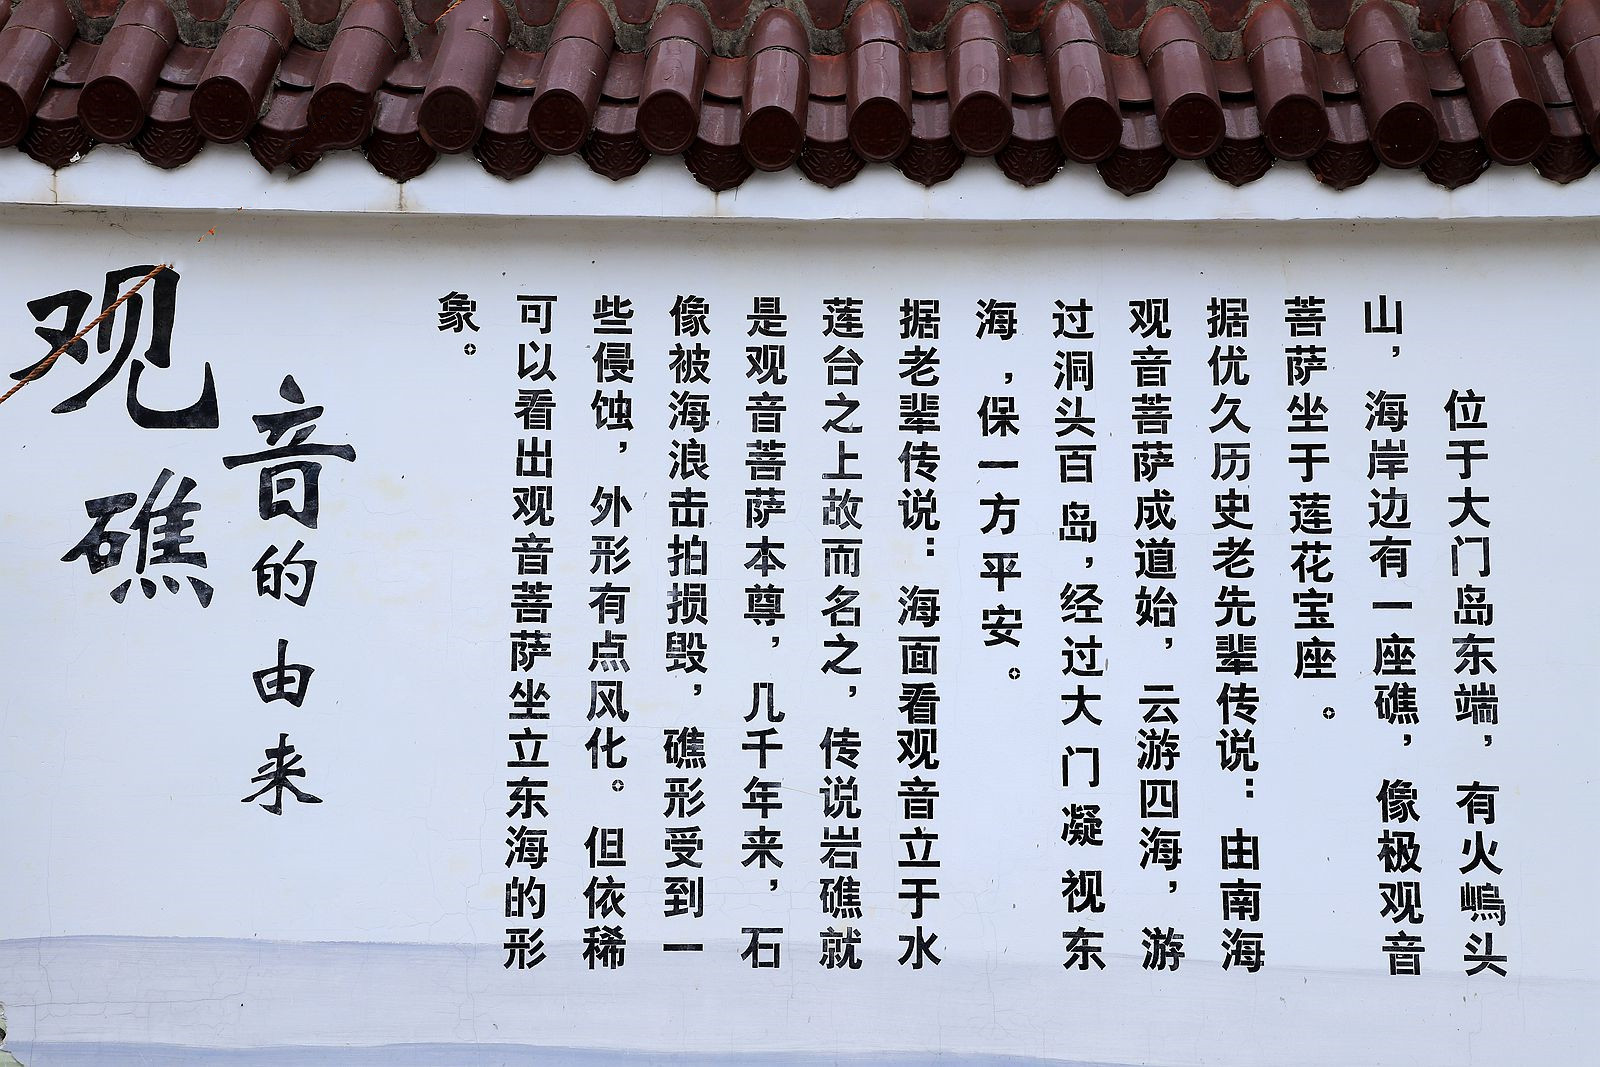 位于大门岛东端，有火嵨头
山，海岸边有一座礁，像极观音
菩萨坐于莲花宝座。
据优久历史老先辈传说：由南海
观音菩萨成道始，云游四海，游
过洞头百岛，经过大门凝视东
海，保一方平安。
据老辈传说：海面看观音立于水
莲台之上故而名之，传说岩礁就
是观音菩萨本尊，几千年来，石
像被海浪击拍损毁，礁形受到一
些侵蚀，外形有点风化。但依稀
可以看出观音菩萨坐立东海的形
象。
观音礁的由来